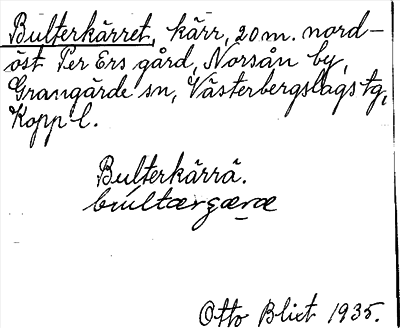 Bulterkärret, kärr, 20 m. nord-
öst Per Ers gård, Norsån by,
Grangärde sn, Västerbergslags tg,
Kopp l.
Bulterkärrä.
bultærgæræ
Otto Blixt 1935.